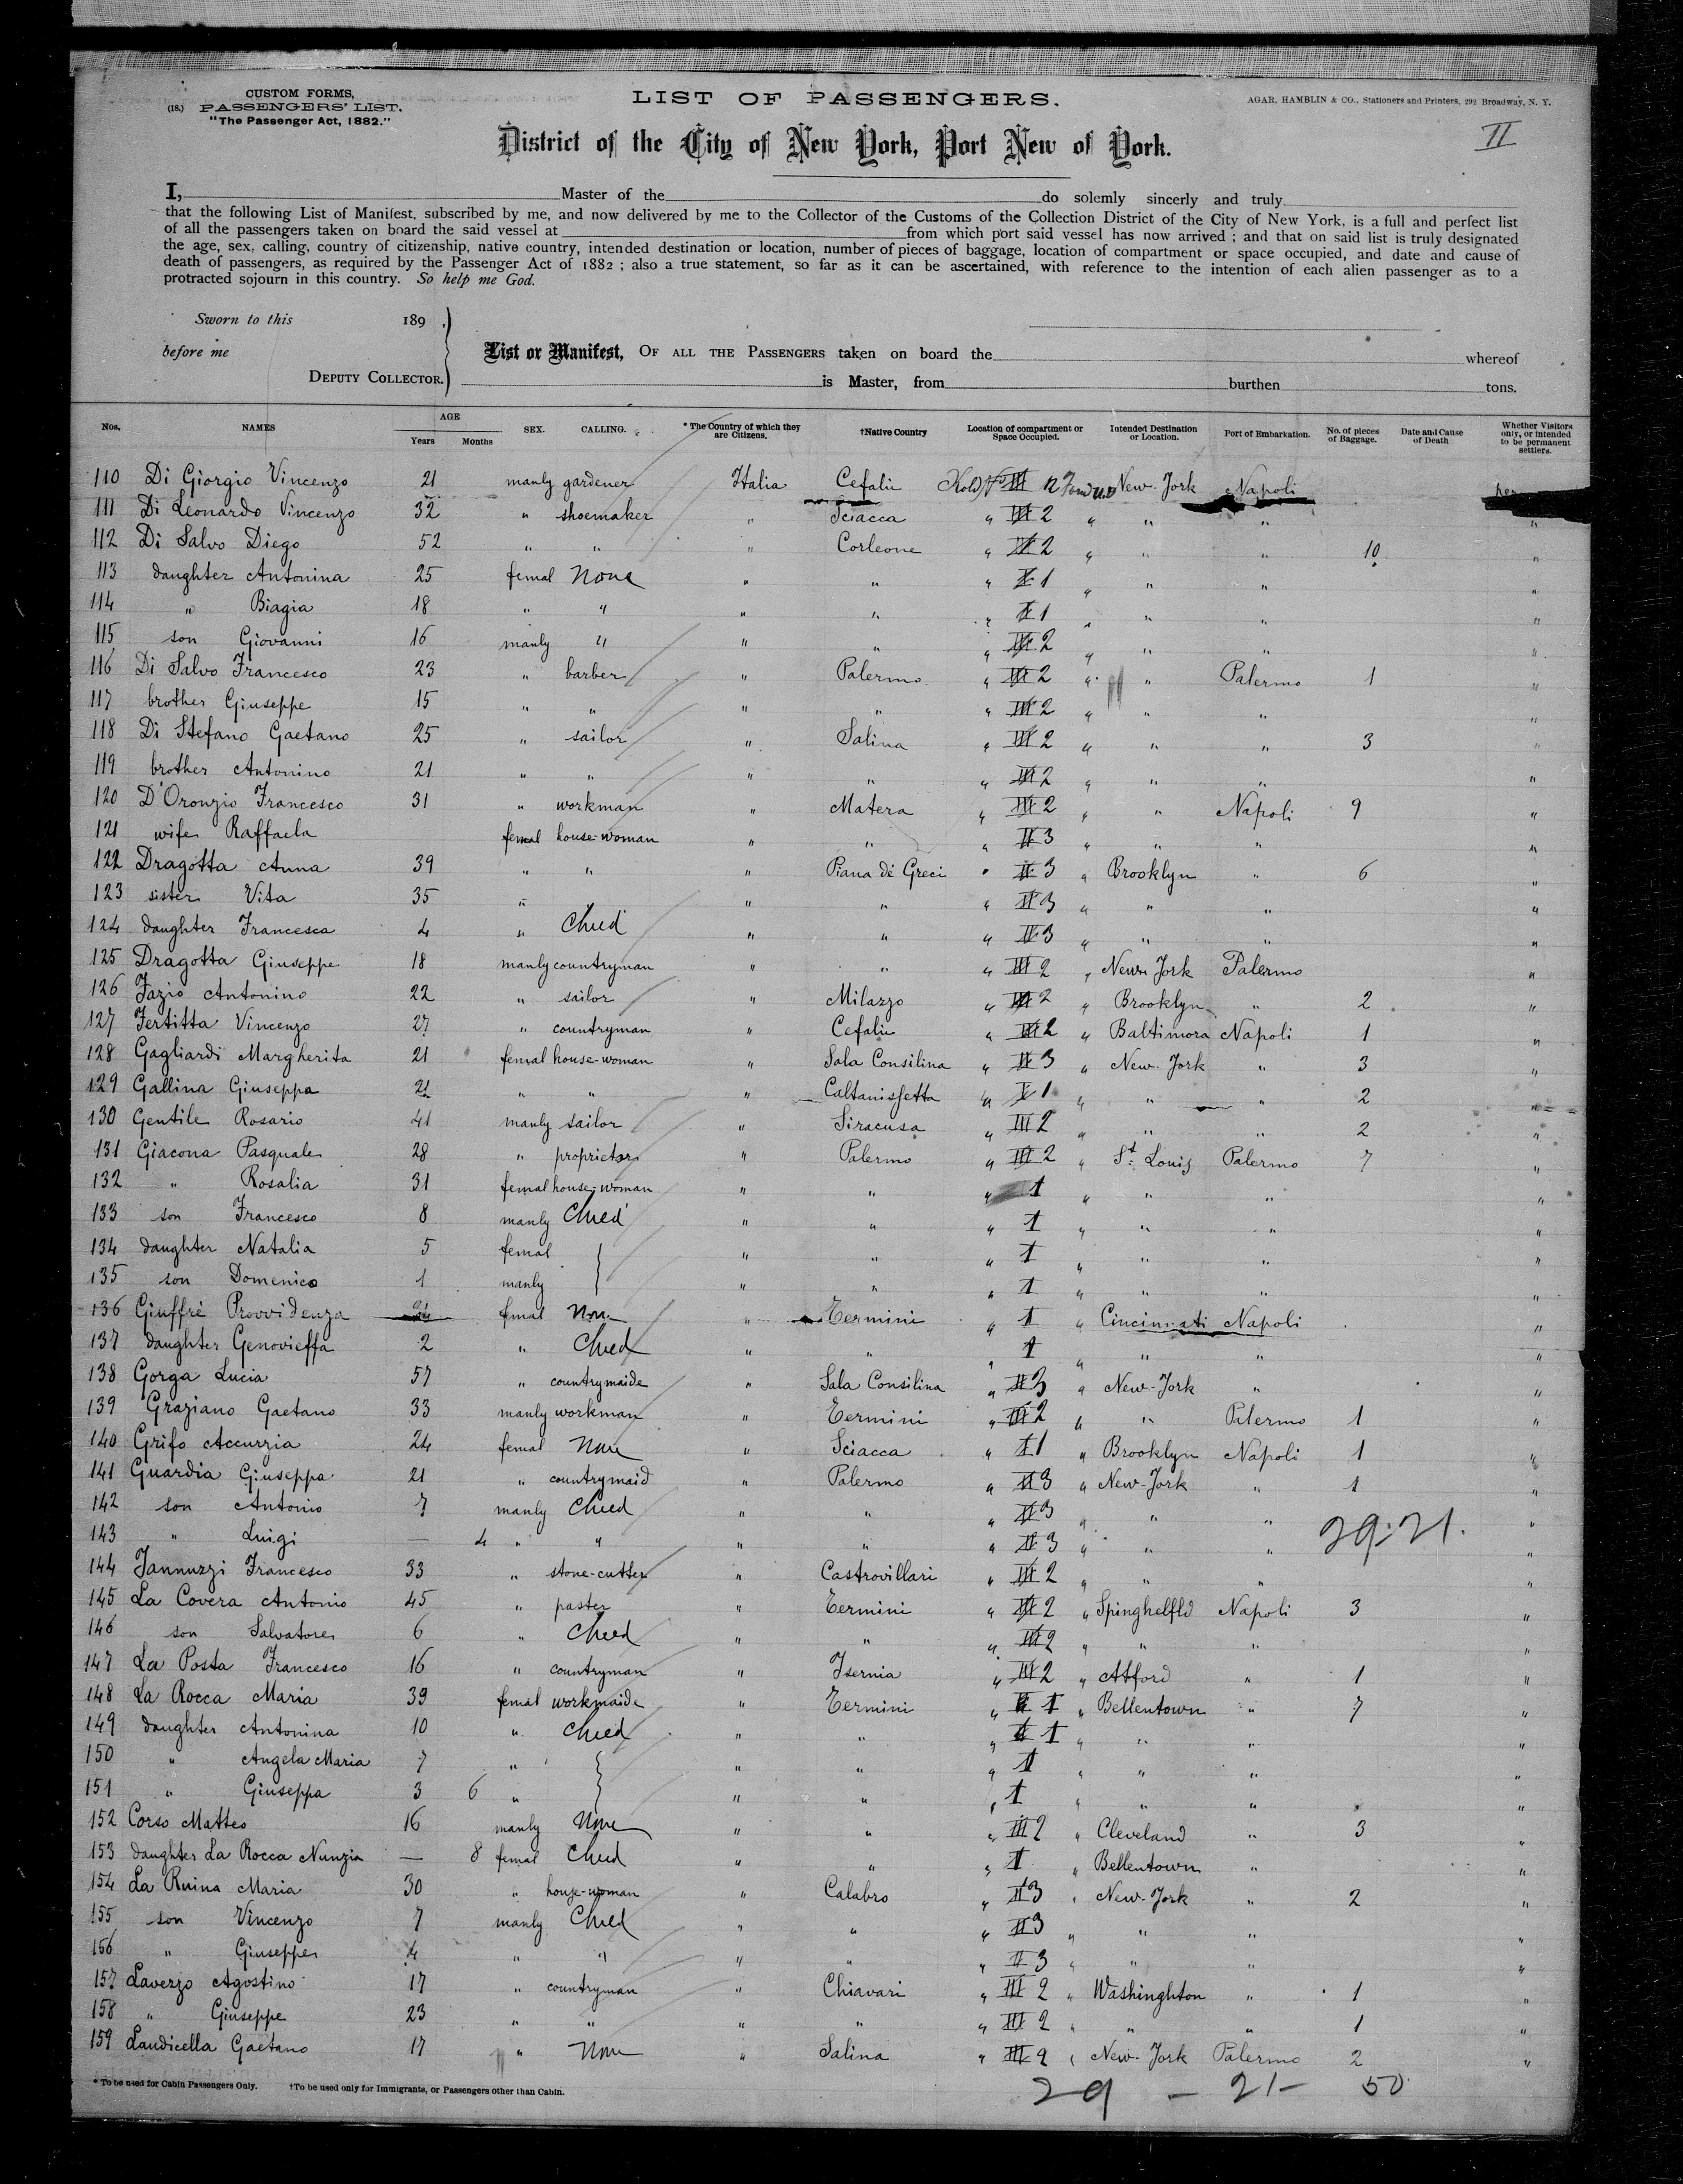 CUSTOM FORMS,
(18.) PASSENGERS' LIST.
"The Passenger Act, 1882."
LIST OF PASSENGERS.
AGAR, HAMBLIN & CO., Stationers and Printers, 292 Broadway, N. Y.
II
District of the City of New York, Port New of York.
I, Master of the do solemly sincerly and truly
that the following List of Manifest, subscribed by me, and now delivered by me to the Collector of the Customs of the Collection District of the City of New York, is a full and perfect list
of all the passengers taken on board the said vessel at from which port said vessel has now arrived ; and that on said list is truly designated
the age, sex, calling, country of citizenship, native country, intended destination or location, number of pieces of baggage, location of compartment or space occupied, and date and cause of
death of passengers, as required by the Passenger Act of 1882 ; also a true statement, so far as it can be ascertained, with reference to the intention of each alien passenger as to a
protracted sojourn in this country. So help me God.
Sworn to this 189 .
before me
DEPUTY COLLECTOR.
List or Manifest, OF ALL THE PASSENGERS taken on board the whereof
is Master, from burthen tons.
Nos. NAMES AGE Years Months SEX. CALLING. * The Country of which they are Citizens. †Native Country Location of compartment or Space Occupied. Intended Destination or Location. Port of Embarkation. No. of pieces of Baggage. Date and Cause of Death Whether Visitors only, or intended to be permanent settlers.
110 Di Giorgio Vincenzo 21 manly gardener Italia Cefalù III New-York Napoli
111 Di Leonardo Vincenzo 32 " shoemaker " Sciacca " III 2 " " " "
112 Di Salvo Diego 52 " " " Corleone " III 2 " " " 10 "
113 daughter Antonina 25 femal None " " " I 1 " " " "
114 " Biagia 18 " " " " " I 1 " " " "
115 son Giovanni 16 manly " " " " III 2 " " " "
116 Di Salvo Francesco 23 " barber " Palermo " III 2 " " Palermo 1 "
117 brother Giuseppe 15 " " " " " III 2 " " " "
118 Di Stefano Gaetano 25 " sailor " Salina " III 2 " " " 3 "
119 brother Antonino 21 " " " " " III 2 " " " "
120 D'Oronzio Francesco 31 " workman " Matera " III 2 " " Napoli 9 "
121 wife Raffaela femal house-woman " " " II 3 " " " "
122 Dragotta Anna 39 " " " Piana dé Greci " II 3 " Brooklyn " 6 "
123 sister Vita 35 " " " " II 3 " " " "
124 daughter Francesca 4 " Chied " " " II 3 " " " "
125 Dragotta Giuseppe 18 manly countryman " " " III 2 " New York Palermo "
126 Fazio Antonino 22 " sailor " Milazzo " III 2 " Brooklyn " 2 "
127 Fertitta Vincenzo 27 " countryman " Cefalù " III 2 " Baltimora Napoli 1 "
128 Gagliardi Margherita 21 femal house-woman " Sala Consilina " II 3 " New-York " 3 "
129 Gallina Giuseppa 21 " " " Caltanissetta " I 1 " " " 2 "
130 Gentile Rosario 41 manly sailor " Siracusa " III 2 " " " 2 "
131 Giacona Pasquale 28 " proprietor " Palermo " III 2 " St Louis Palermo 7 "
132 " Rosalia 31 femal house-woman " " " 1 " " " "
133 son Francesco 8 manly Chied " " " 1 " " " "
134 daughter Natalia 5 femal " " " 1 " " " "
135 son Domenico 1 manly " " " 1 " " " "
136 Giuffrè Provvidenza femal None " Termini " 1 " Cincinnati Napoli "
137 daughter Genovieffa 2 " Chied " " " 1 " " " "
138 Gorga Lucia 57 " countrymaide " Sala Consilina " II 3 " New-York " "
139 Graziano Gaetano 33 manly workman " Termini " III 2 " " Palermo 1 "
140 Grifo Accurzia 24 femal None " Sciacca " I 1 " Brooklyn Napoli 1 "
141 Guardia Giuseppa 21 " countrymaid " Palermo " II 3 " New-York " 1 "
142 son Antonio 7 manly Chied " " " II 3 " " " "
143 " Luigi — 4 " " " " " II 3 " " " "
29:21.
144 Jannuzzi Francesco 33 " stone-cutter " Castrovillari " III 2 " " " "
145 La Covera Antonio 45 " paster " Termini " III 2 " Spinghelfld Napoli 3 "
146 son Salvatore 6 " Chied " " " III 2 " " " "
147 La Posta Francesco 16 " countryman " Isernia " III 2 " Atford " 1 "
148 La Rocca Maria 39 femal workmaide " Termini " 1 " Bellentown " 7 "
149 daughter Antonina 10 " Chied " " " 1 " " " "
150 " Angela Maria 7 " " " " 1 " " " "
151 " Giuseppa 3 6 " " " " 1 " " " "
152 Corso Matteo 16 manly None " " " III 2 " Cleveland " 3 "
153 daughter La Rocca Nunzia — 8 femal Chied " " " 1 " Bellentown " "
154 La Ruina Maria 30 " house-woman " Calabro " II 3 " New-York " 2 "
155 son Vincenzo 7 manly Chied " " " II 3 " " " "
156 " Giuseppe 4 " " " " " II 3 " " " "
157 Lavezzo Agostino 17 " countryman " Chiavari " III 2 " Washinghton " 1 "
158 " Giuseppe 23 " " " " " III 2 " " " 1 "
159 Laudicella Gaetano 17 " None " Salina " III 2 " New-York Palermo 2 "
* To be used for Cabin Passengers Only. †To be used only for Immigrants, or Passengers other than Cabin.
29 — 21 — 50